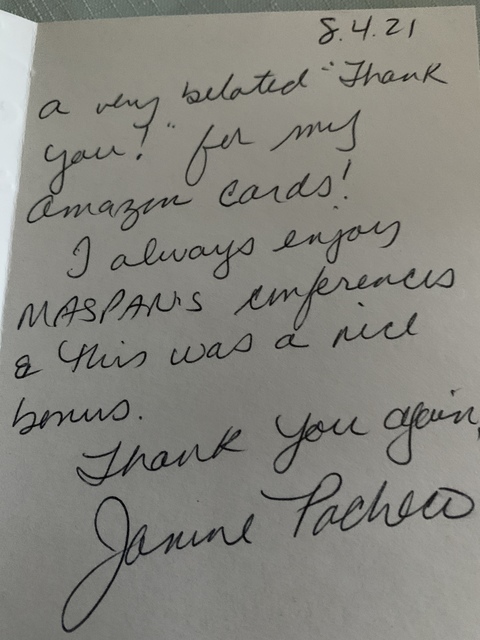 8.4.21
a very belated "Thank
you!" for my
amazon cards!
I always enjoy
MASPAN's conferences
& this was a nice
bonus.
Thank you again,
Janine Pacheco